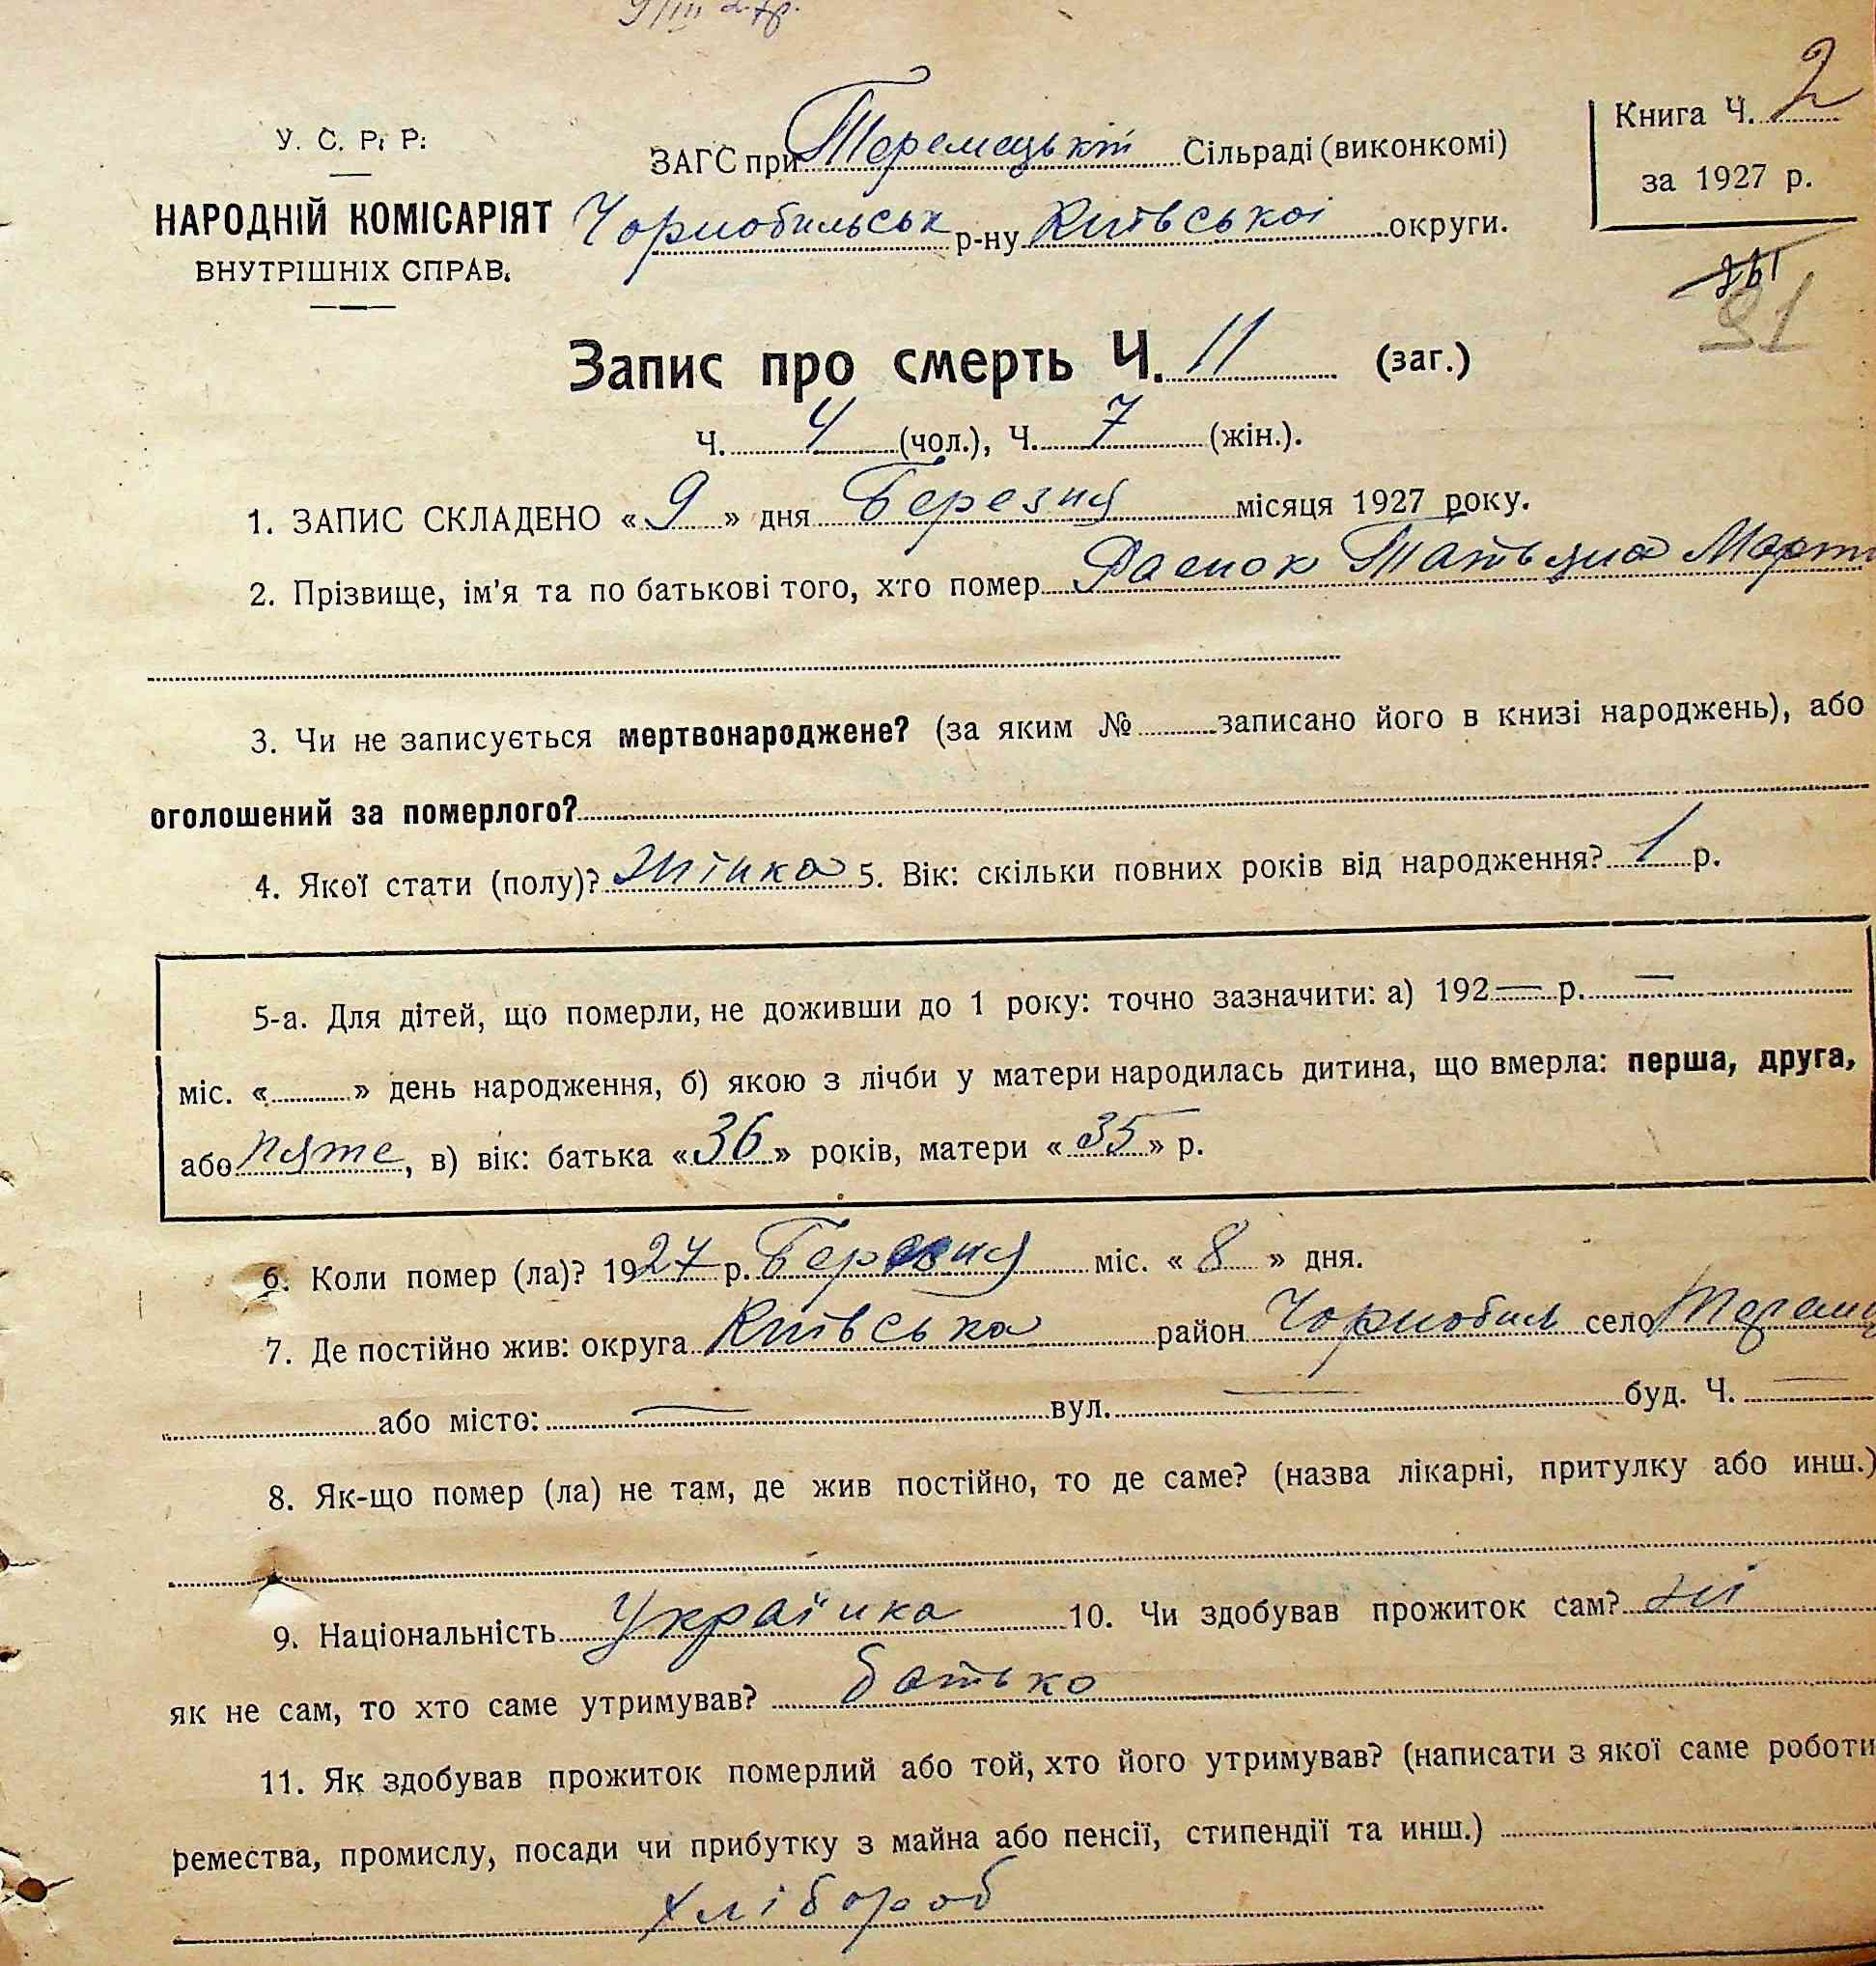 9/III
У. С. Р. Р.
НАРОДНІЙ КОМІСАРІЯТ
ВНУТРІШНІХ СПРАВ.
ЗАГС при Теремецькій Сільраді (виконкомі)
Чорнобильськ р-ну Київської округи.
Книга Ч. 2
за 1927 р.
91
Запис про смерть Ч. 11 (заг.)
Ч. 4 (чол.), Ч. 7 (жін.).
1. ЗАПИС СКЛАДЕНО « 9 » дня Березня місяця 1927 року.
2. Прізвище, ім'я та по батькові того, хто помер Татьяна Март
3. Чи не записується мертвонароджене? (за яким № записано його в книзі народжень), або
оголошений за померлого?
4. Якої стати (полу)? Жінка 5. Вік: скільки повних років від народження? 1 р.
5-а. Для дітей, що померли, не доживши до 1 року: точно зазначити: а) 192 — р. —
міс. « » день народження, б) якою з лічби у матери народилась дитина, що вмерла: перша, друга,
або пяте, в) вік: батька « 36 » років, матери « 35 » р.
6. Коли помер (ла)? 1927 р. Березня міс. « 8 » дня.
7. Де постійно жив: округа Київська район Чорнобил село Теремц
або місто: — вул. — буд. Ч. —
8. Як-що помер (ла) не там, де жив постійно, то де саме? (назва лікарні, притулку або инш.)
9. Національність Українка 10. Чи здобував прожиток сам? ні
як не сам, то хто саме утримував? батько
11. Як здобував прожиток померлий або той, хто його утримував? (написати з якої саме роботи
ремества, промислу, посади чи прибутку з майна або пенсії, стипендії та инш.)
хлібороб